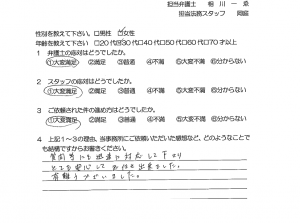 担当弁護士 相川一ゑ
担当法務スタッフ 岡庭
性別を教えて下さい。□男性 ☑女性
年齢を教えて下さい □20代☑30代□40代□50代□60代□70才以上
1 弁護士の応対はどうでしたか。
①大変満足 ②満足 ③普通 ④不満 ⑤大変不満 ⑥分からない
2 スタッフの応対はどうでしたか。
①大変満足 ②満足 ③普通 ④不満 ⑤大変不満 ⑥分からない
3 ご依頼された件の進め方はどうでしたか。
①大変満足 ②満足 ③普通 ④不満 ⑤大変不満 ⑥分からない
4 上記1~3の理由、当事務所にご依頼いただいた感想など、どのようなことで
も結構ですからお書きください。
質問等にも迅速に対応して下さり
とても安心してお任せ出来ました。
有難うございました。